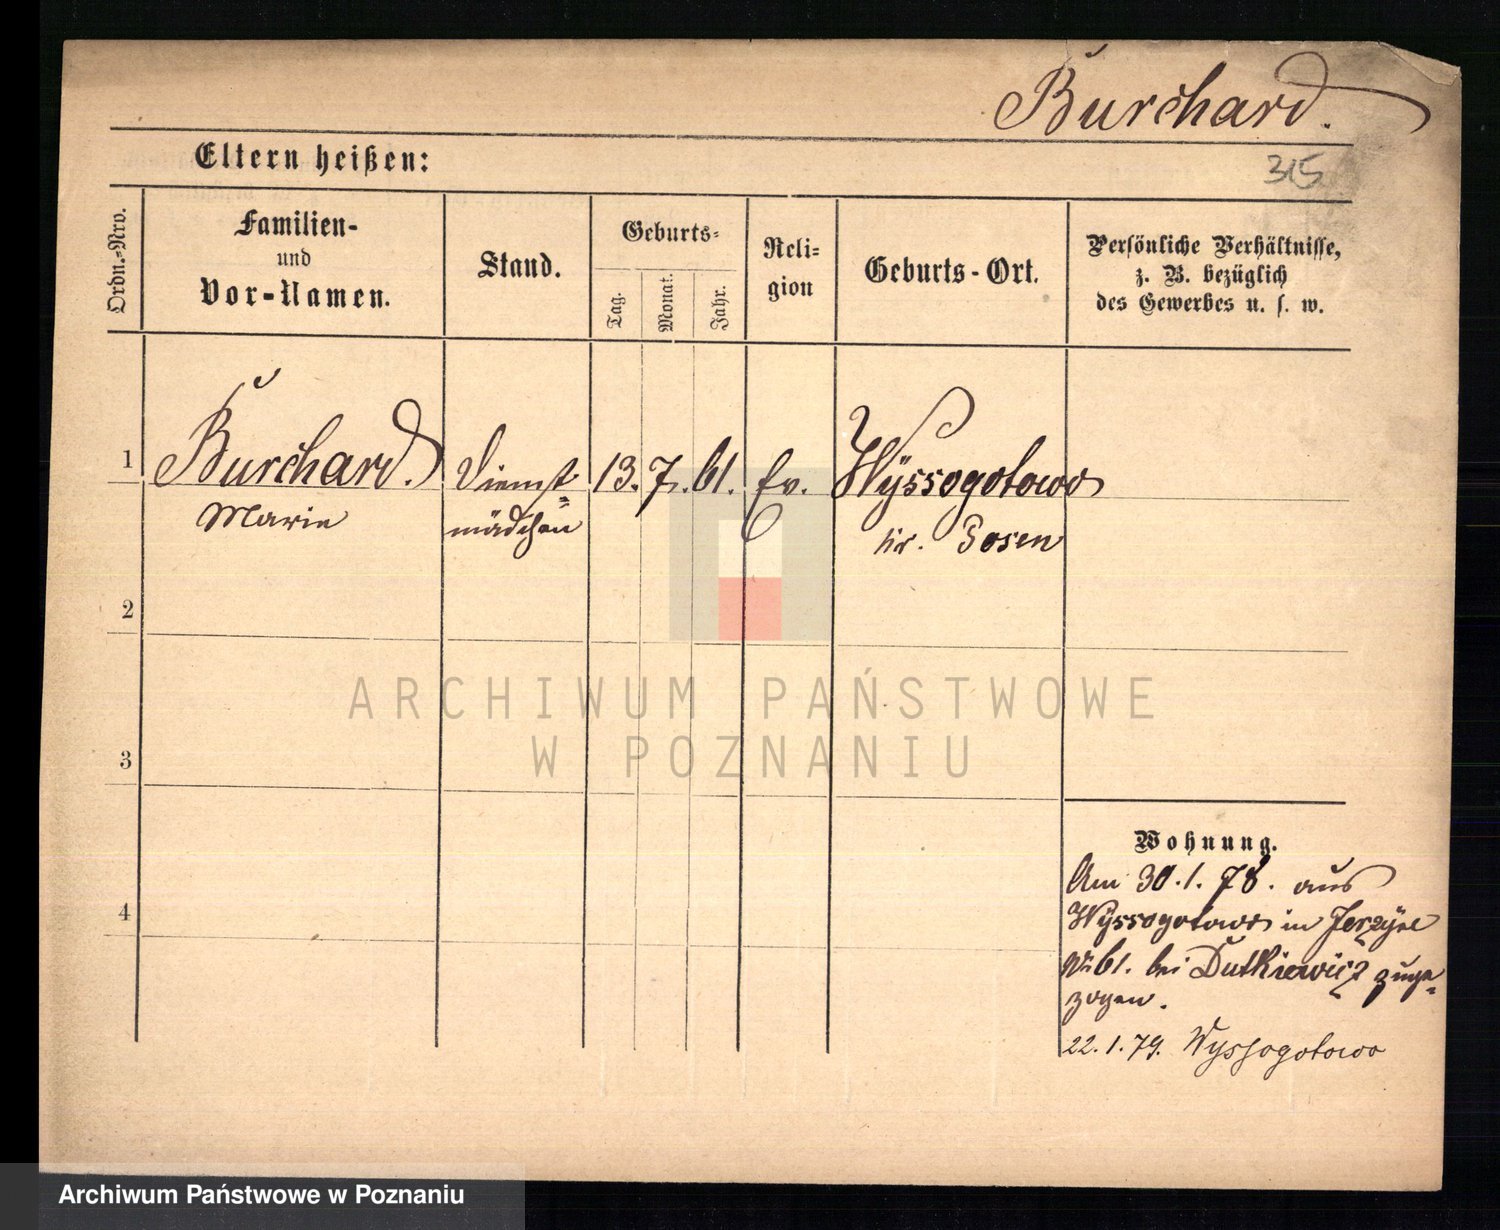 Burchard.
315
Eltern heißen:
Ordn.-Nro.
Familien-
und
Vor-Namen.
Stand.
Geburts-
Tag.
Monat.
Jahr.
Reli-
gion
Geburts-Ort.
Persönliche Verhältnisse,
z. B. bezüglich
des Gewerbes u. s. w.
1
Burchard.
Marie
Dienst-
mädchen
13. 7. 61.
Ev.
Wyssogotowo
Kr. Posen
2
3
4
Wohnung.
Am 30.1.78. aus
Wyssogotowo in
No 61. bei Dutkiewicz zuge-
zogen.
22.1.79. Wyssogotowo
ARCHIWUM PAŃSTWOWE
W POZNANIU
Archiwum Państwowe w Poznaniu